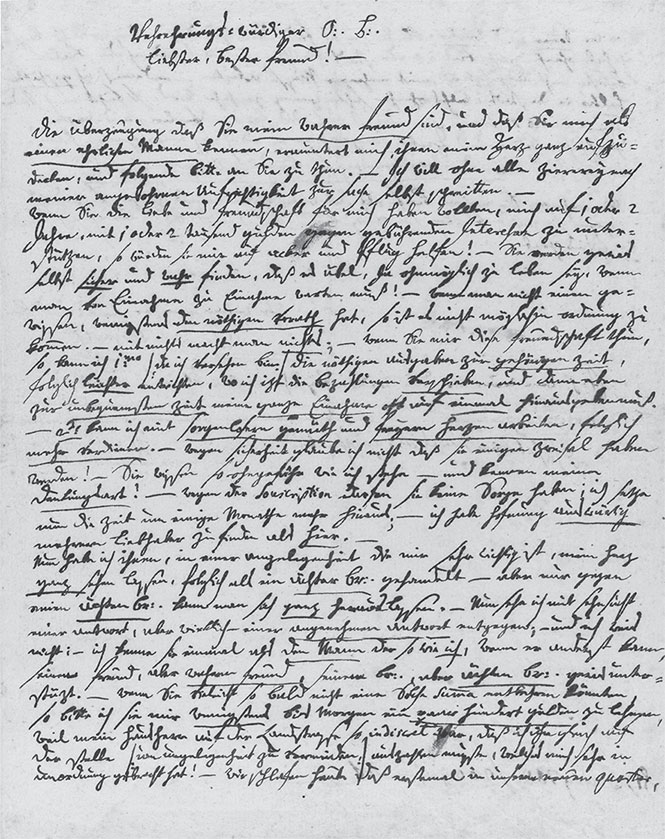 Verehrungswürdiger O: B:
liebster, bester freund! —
Die überzeugung daß Sie mein wahrer freund sind, und daß Sie mich als
einen ehrlichen Manne kennen, ermuntert mich ihnen mein Herz ganz aufzu-
decken, und folgende bitte an Sie zu thun. — Ich will ohne alle ziererey nach
meiner angebohrnen Aufrichtigkeit zur sache selbst schreiten. —
Wenn Sie die liebe und freundschaft für mich haben wollten, mich auf 1 oder 2
Jahre, mit 1 oder 2 tausend gulden gegen gebührenden Interessen zu unter-
stützen, so würden sie mir auf acker und Pflug helfen! — Sie werden gewis
selbst sicher und wahr finden, daß es übel, Ja ohnmöglich zu leben sey, wenn
man von Einnahme zu Einnahme warten muß! — wenn man nicht einen ge-
wissen, wenigstens den nöthigen vorath hat, so ist es nicht möglich in ordnung zu
kommen. — mit nichts macht man nichts; — wenn Sie mir diese freundschaft thun,
so kann ich 1mo da ich versehen bin die nöthigen ausgaben zur gehörigen zeit,
folglich leichter entrichten, wo ich izt die bezahlungen verschieben, und dann eben
zur unbequemsten zeit meine ganze Einnahme oft auf einmal hinausgeben muß.
— 2do kann ich mit sorgenloserm gemüth und freyern herzen arbeiten, folglich
mehr verdienen. — wegen sicherheit glaube ich nicht daß sie einigen zweifel haben
werden! — Sie wissen so ohngefähr wie ich stehe — und kennen meine
denkungsart! — wegen der souscription dürfen sie keine Sorge haben; ich setze
nun die zeit um einige Monathe mehr hinaus; — ich habe hofnung auswärtig
mehrere liebhaber zu finden als hier. —
Nun habe ich ihnen, in einer angelegenheit die mir sehr wichtig ist, mein herz
ganz sehen lassen, folglich als ein ächter br: gehandelt — aber nur gegen
einen ächten br: kann man sich ganz herauslassen. — Nun sehe ich mit sehnsucht
einer antwort, aber wirklich — einer angenehmen antwort entgegen; — und ich weis
nicht: — ich kenne sie einmal als den Mann der so wie ich, wenn er anderst kann,
seinen freund, aber wahren freund, seinen br:, aber ächten br: gewis unter-
stüzt. — wenn Sie vieleicht so bald nicht eine solche Suma entbehren könnten
so bitte ich sie mir wenigstens bis Morgen ein paar hundert gulden zu lehnen,
weil mein hausherr auf der landstrasse so indiscret war, daß ich ihn gleich auf
der stelle um ungelegenheit zu vermeiden, auszahlen musste, welches mich sehr in
unordnung gebracht hat! — wir schlafen heute daß erstemal in unserem neuen quartier,